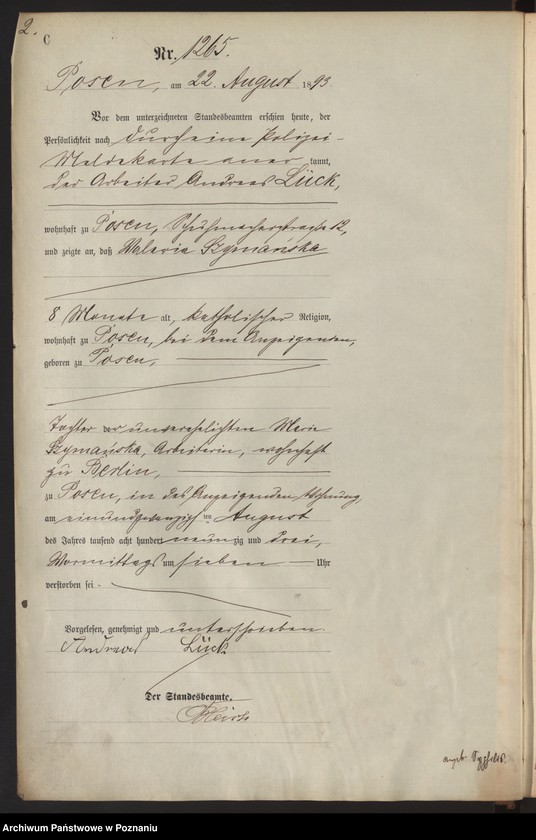 2.
C
Nr. 1265.
Posen, am 22. August 1893
Vor dem unterzeichneten Standesbeamten erschien heute, der
Persönlichkeit nach durch eine Polizei-
Meldekarte aner kannt,
der Arbeiter Andreas Lück,
wohnhaft zu Posen, Schuhmacherstraße 12,
und zeigte an, daß Waleria Szymańska
8 Monate alt, katholischer Religion,
wohnhaft zu Posen, bei dem Anzeigenden,
geboren zu Posen,
Tochter der unverehelichten Marie
Szymańska, Arbeiterin, wohnhaft
zu Berlin,
zu Posen, in des Anzeigenden Wohnung,
am einundzwanzigsten August
des Jahres tausend acht hundert neunzig und drei,
Vormittags um sieben Uhr
verstorben sei.
Vorgelesen, genehmigt und unterschrieben.
Andreas Lück
Der Standesbeamte.
Archiwum Państwowe w Poznaniu